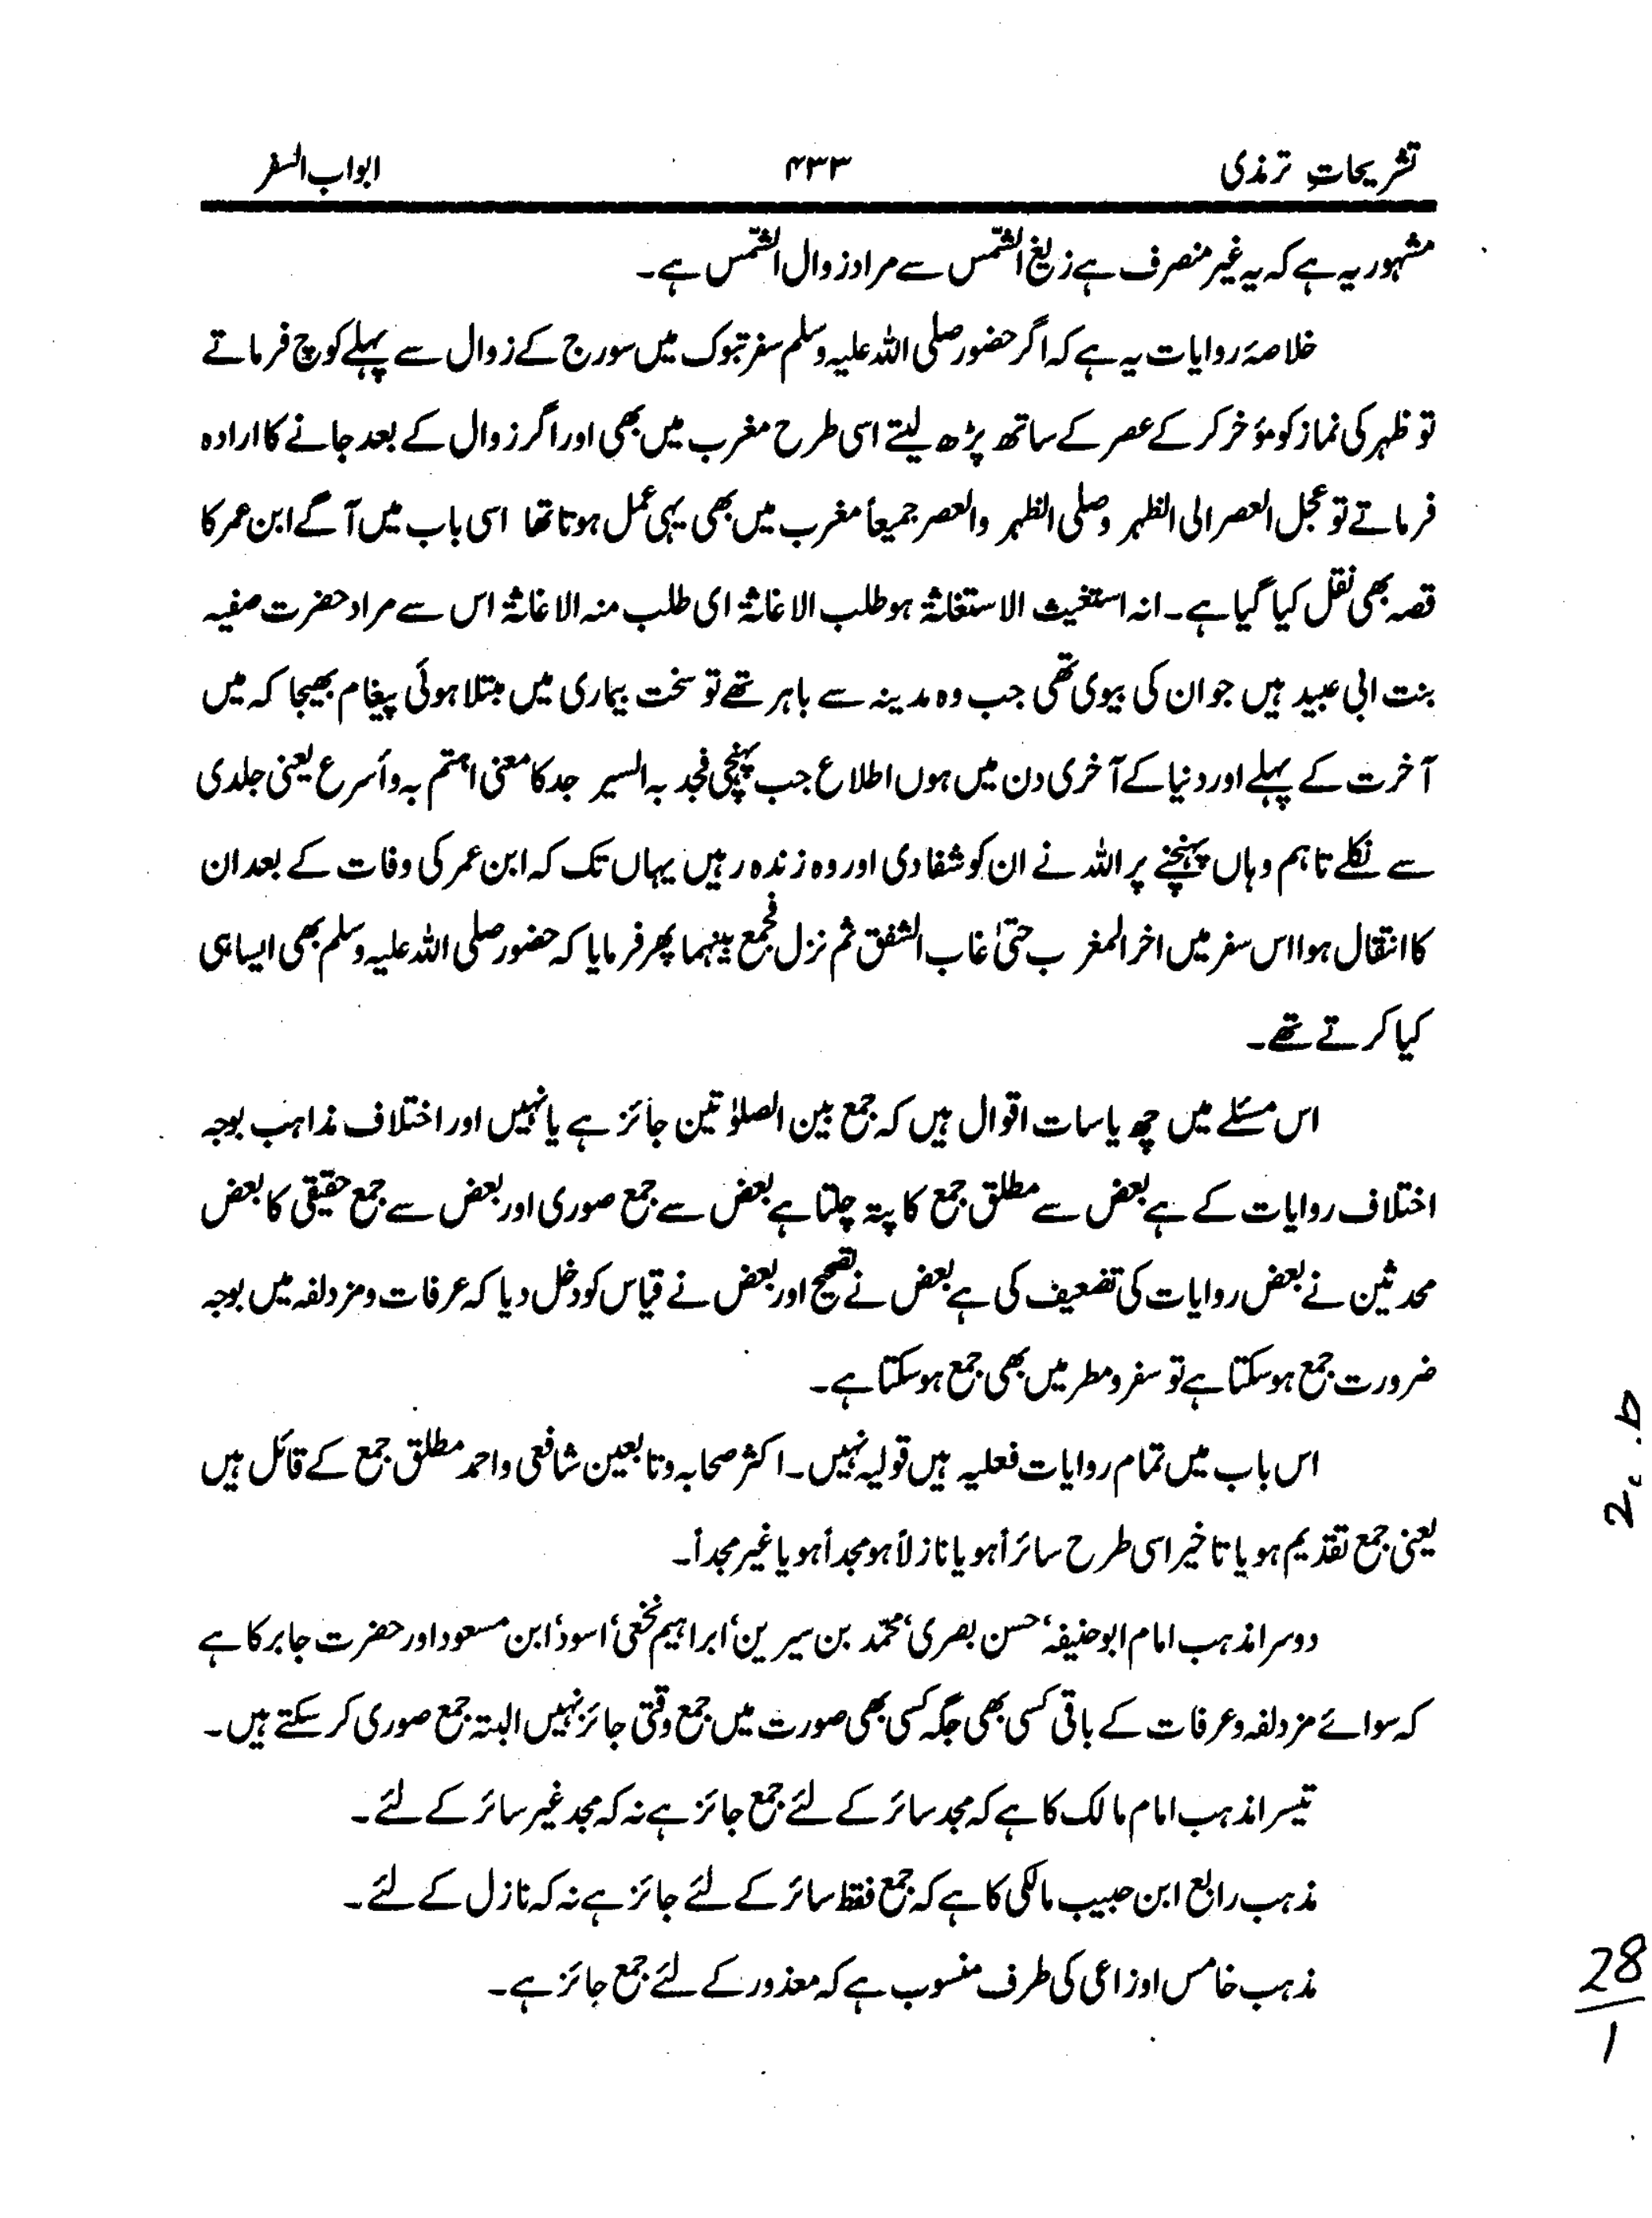 تشریحاتِ ترمذی ۴۳۳ ابواب السفر
مشہور یہ ہے کہ یہ غیر منصرف ہے زیغ الشمس سے مراد زوال الشمس ہے۔
خلاصۂ روایات یہ ہے کہ اگر حضور صلی اللہ علیہ وسلم سفر تبوک میں سورج کے زوال سے پہلے کوچ فرماتے
تو ظہر کی نماز کو مؤخر کر کے عصر کے ساتھ پڑھ لیتے اسی طرح مغرب میں بھی اور اگر زوال کے بعد جانے کا ارادہ
فرماتے تو عجل العصر الی الظہر وصلی الظہر والعصر جمیعاً مغرب میں بھی یہی عمل ہوتا تھا اسی باب میں آگے ابن عمر کا
قصہ بھی نقل کیا گیا ہے۔ انہ استغیث الاستغاثۃ ہو طلب الاغاثۃ ای طلب منہ الاغاثۃ اس سے مراد حضرت صفیہ
بنت ابی عبید ہیں جو ان کی بیوی تھی جب وہ مدینہ سے باہر تھے تو سخت بیماری میں مبتلا ہوئی پیغام بھیجا کہ میں
آخرت کے پہلے اور دنیا کے آخری دن میں ہوں اطلاع جب پہنچی فجد بہ السیر جد کا معنی اہتم بہ وأسرع یعنی جلدی
سے نکلے تاہم وہاں پہنچنے پر اللہ نے ان کو شفا دی اور وہ زندہ رہیں یہاں تک کہ ابن عمر کی وفات کے بعد ان
کا انتقال ہوا اس سفر میں اخر المغرب حتیٰ غاب الشفق ثم نزل فجمع بینہما پھر فرمایا کہ حضور صلی اللہ علیہ وسلم بھی ایسا ہی
کیا کرتے تھے۔
اس مسئلے میں چھ یا سات اقوال ہیں کہ جمع بین الصلوٰتین جائز ہے یا نہیں اور اختلاف مذاہب بوجہ
اختلاف روایات کے ہے بعض سے مطلق جمع کا پتہ چلتا ہے بعض سے جمع صوری اور بعض سے جمع حقیقی کا بعض
محدثین نے بعض روایات کی تضعیف کی ہے بعض نے تصحیح اور بعض نے قیاس کو دخل دیا کہ عرفات و مزدلفہ میں بوجہ
ضرورت جمع ہوسکتا ہے تو سفر و مطر میں بھی جمع ہوسکتا ہے۔
اس باب میں تمام روایات فعلیہ ہیں قولیہ نہیں۔ اکثر صحابہ و تابعین شافعی و احمد مطلق جمع کے قائل ہیں
یعنی جمع تقدیم ہو یا تاخیر اسی طرح سائراً ہو یا نازلاً ہو مجداً ہو یا غیر مجداً۔
دوسرا مذہب امام ابوحنیفہ، حسن بصری، محمد بن سیرین، ابراہیم نخعی، اسود، ابن مسعود اور حضرت جابر کا ہے
کہ سوائے مزدلفہ و عرفات کے باقی کسی بھی جگہ کسی بھی صورت میں جمع وقتی جائز نہیں البتہ جمع صوری کرسکتے ہیں۔
تیسرا مذہب امام مالک کا ہے کہ مجد سائر کے لئے جمع جائز ہے نہ کہ مجد غیر سائر کے لئے۔
مذہب رابع ابن حبیب مالکی کا ہے کہ جمع فقط سائر کے لئے جائز ہے نہ کہ نازل کے لئے۔
مذہب خامس اوزاعی کی طرف منسوب ہے کہ معذور کے لئے جمع جائز ہے۔
28
1